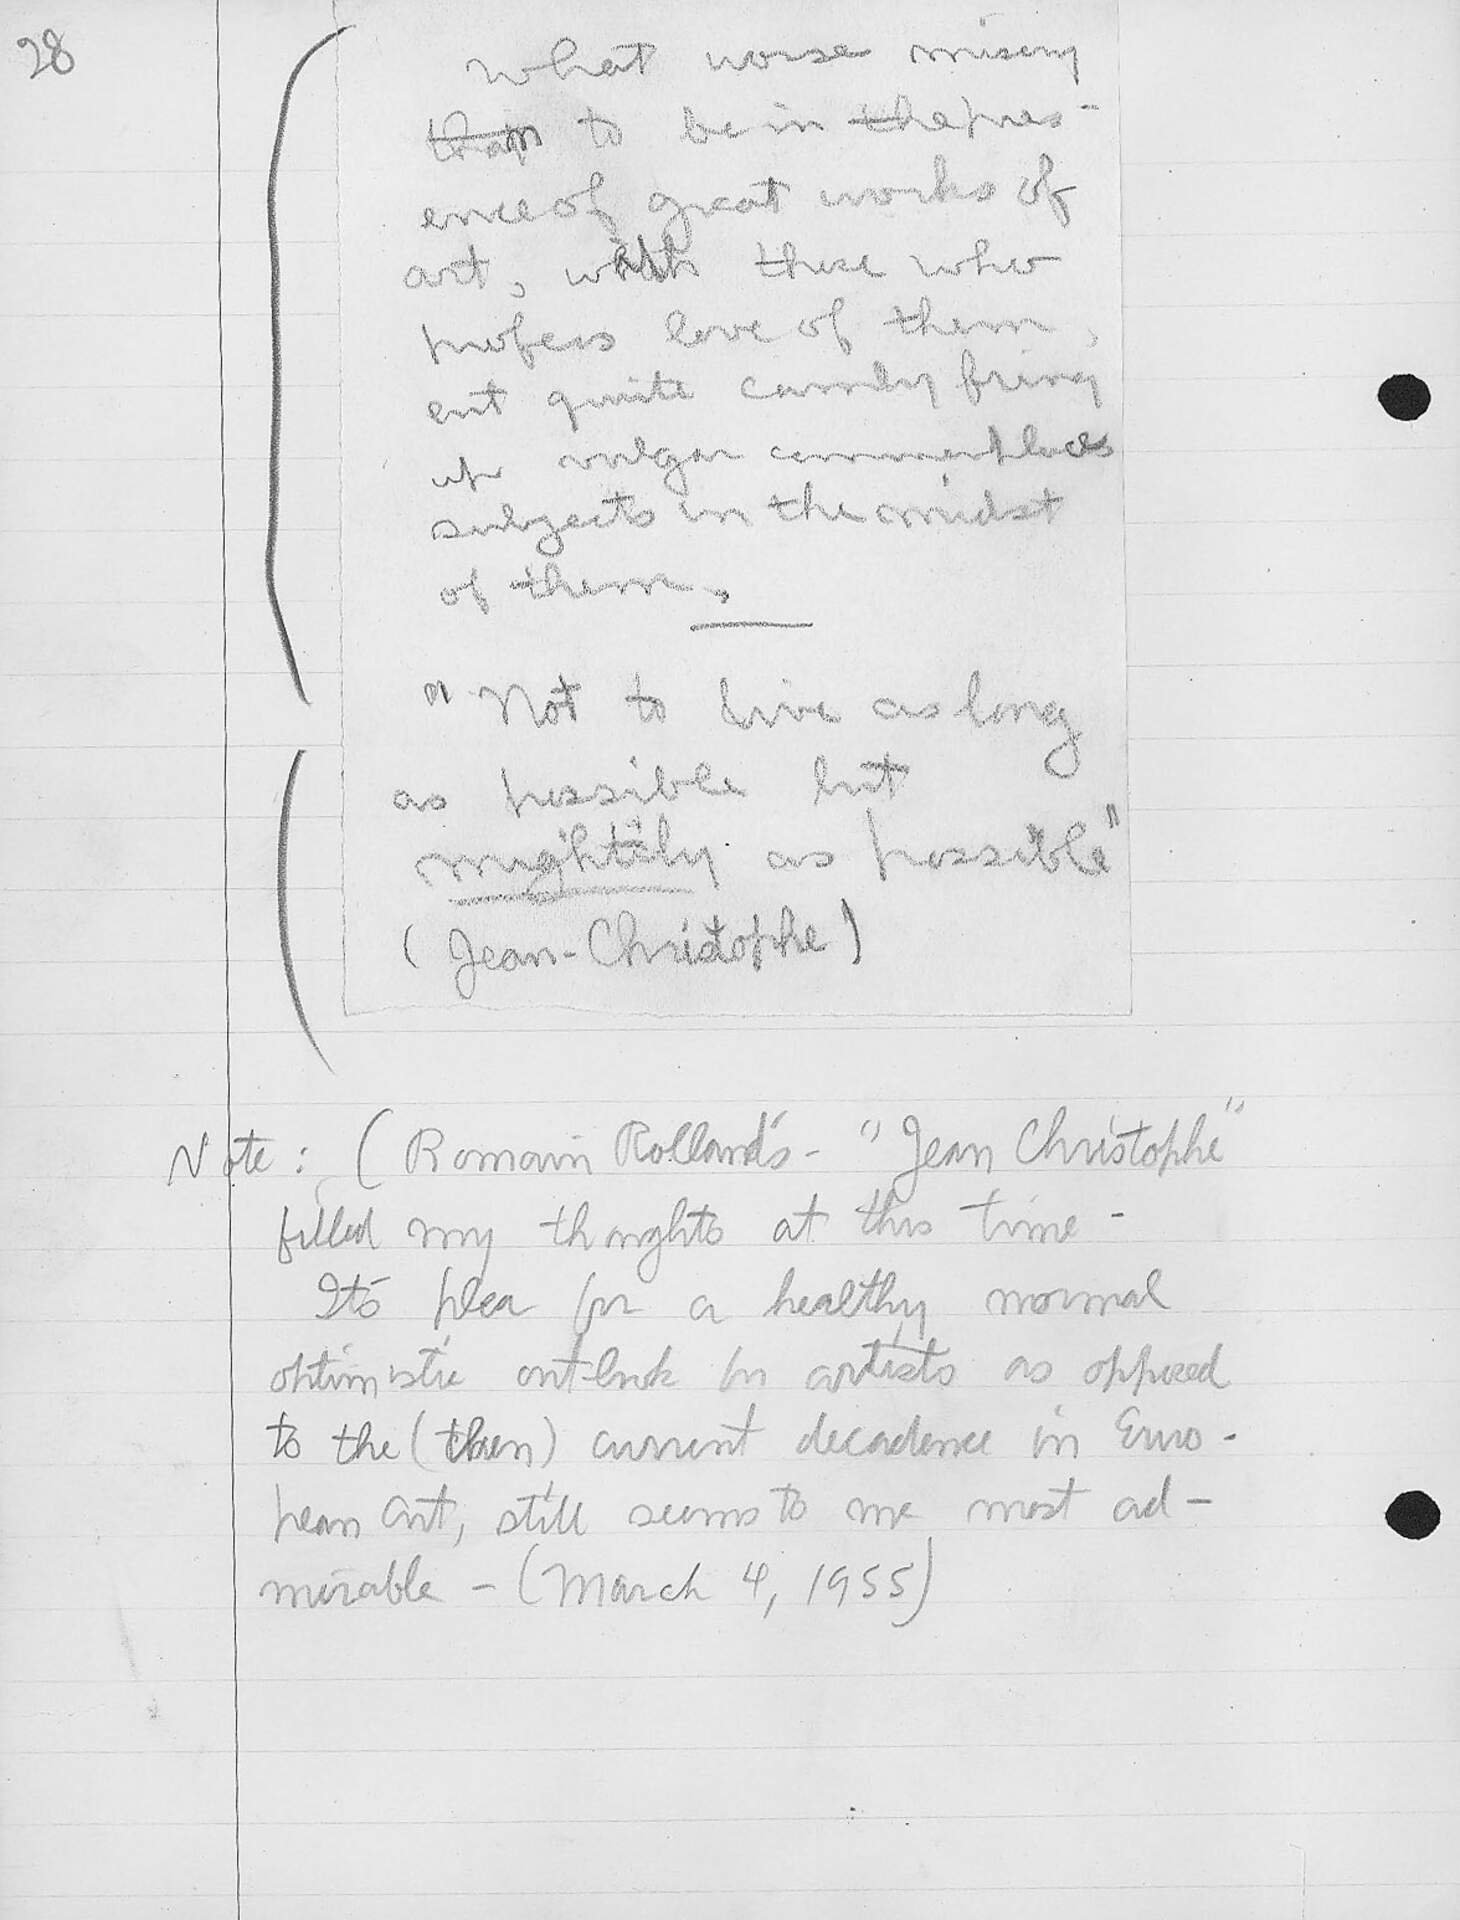 28
What worse misery
than to be in the pres-
ence of great works of
art, with those who
profess love of them,
but quite calmly bring
up vulgar commonplaces
subjects in the midst
of them.
"Not to live as long
as possible but
mightily as possible"
(Jean-Christophe)
Note: (Romain Rolland's - "Jean Christophe"
filled my thoughts at this time -
Its plea for a healthy normal
optimistic outlook in artists as opposed
to the (then) current decadence in Euro-
pean art, still seems to me most ad-
mirable - (March 4, 1955)